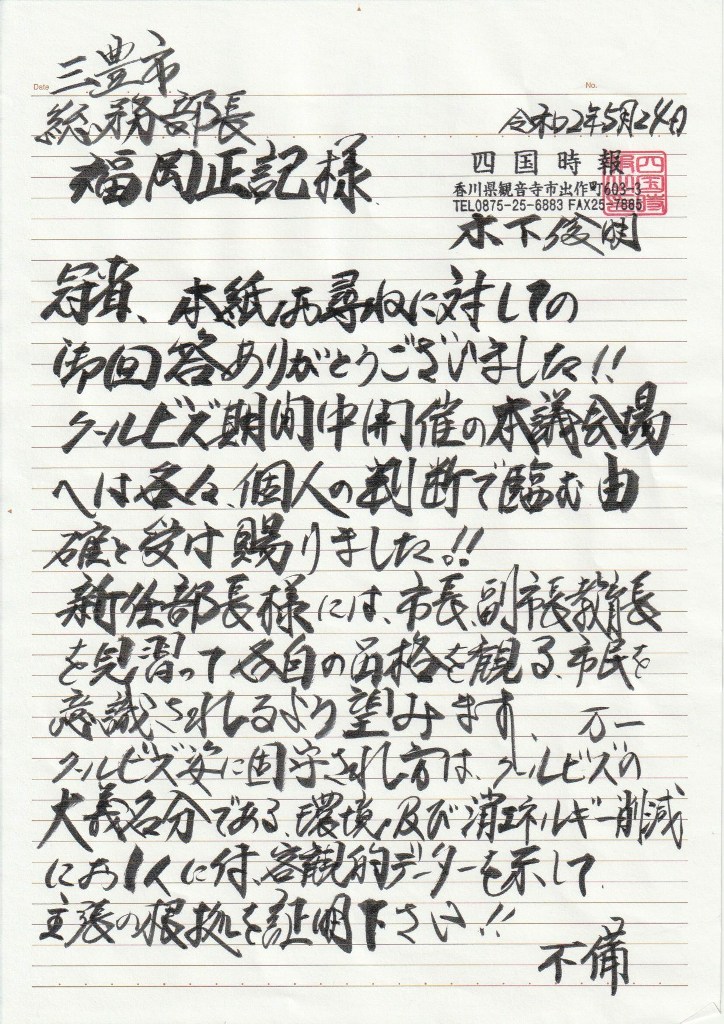 Date
No.
三豊市
総務部長
福岡正記様
令和2年5月24日
四国時報
香川県観音寺市出作町603-3
TEL0875-25-6883 FAX25-7885
木下俊明
冠省、本紙お尋ねに対しての
御回答ありがとうございました!!
クールビズ期間中開催の本議会場
へは各々、個人の判断で臨む由
確と受け賜りました。!!
新任部長様には、市長、副市長教育長
を見習って各自の品格を観る、市民を
意識されるよう望みます、万一
クールビズ姿に固守され方は、クールビズの
大義名分である、環境、及び消エネルギー削減
にお1人に付、客観的データーを示して
主張の根拠を証明下さい!!
不備